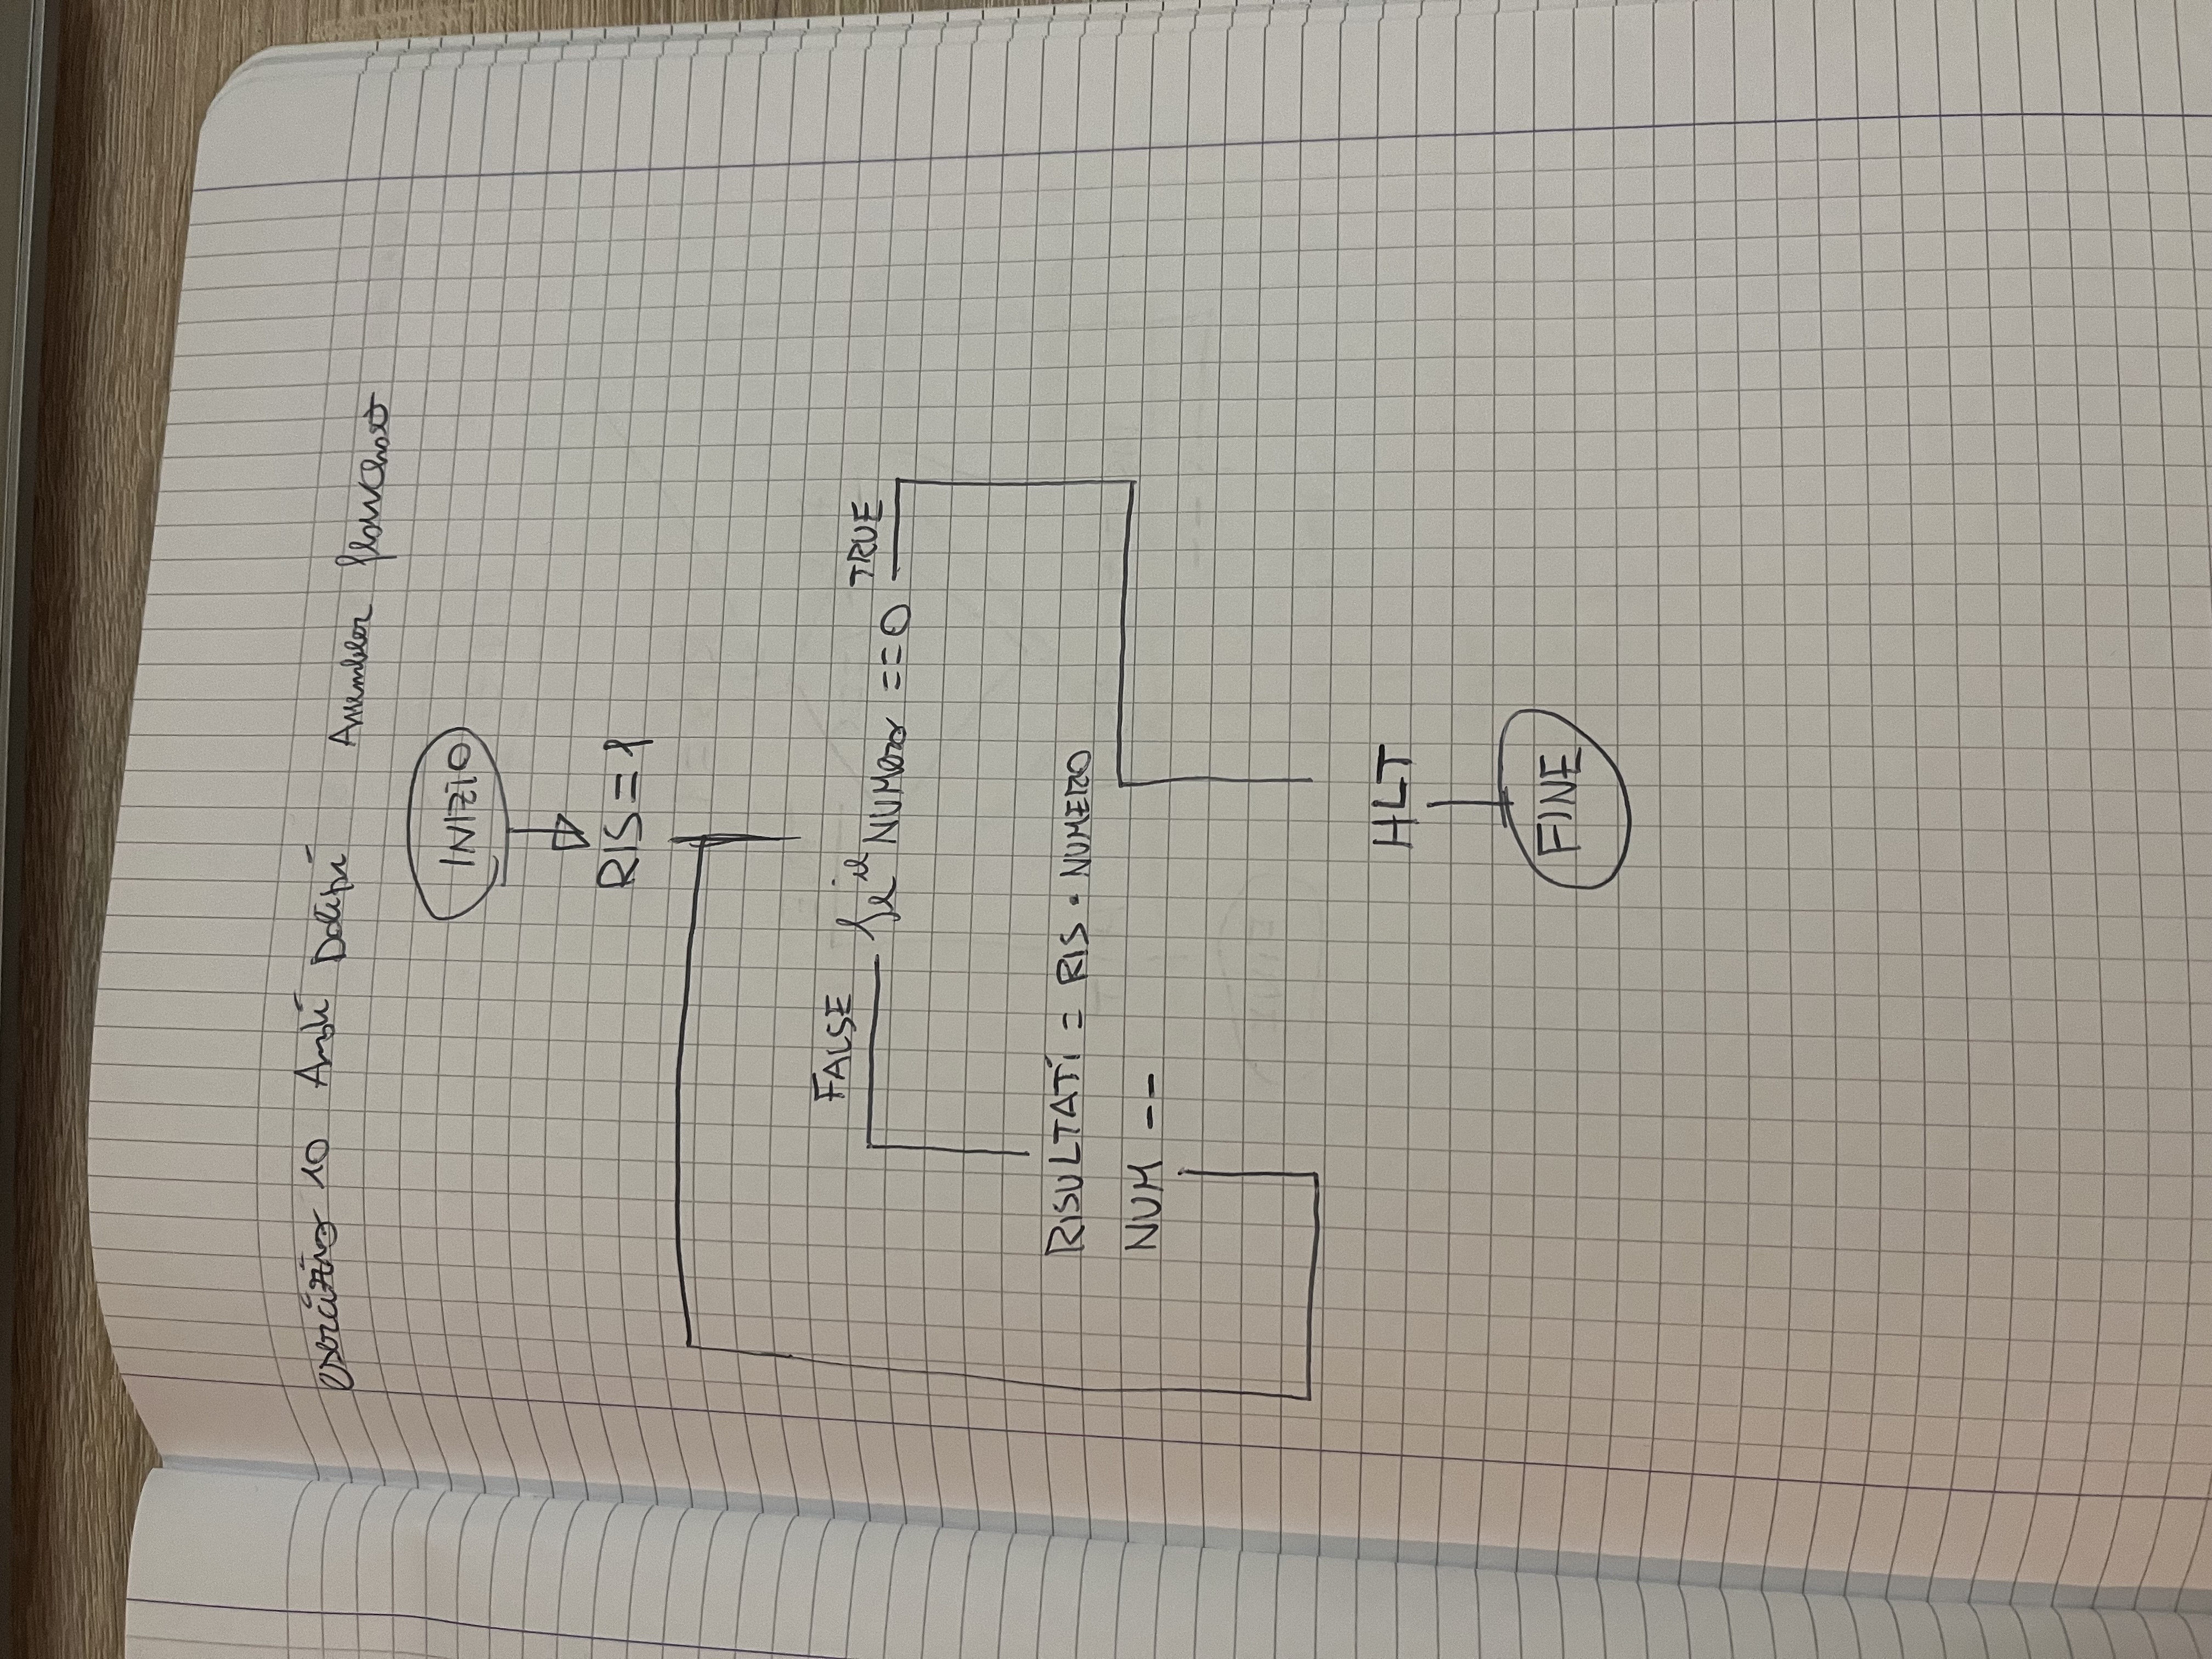 esercizio 10 Assembler flowchart
INIZIO
RIS = 1
FALSE se il NUMero == 0 TRUE
RISULTATi = RIS • NUMERO
NUM --
HLT
FINE